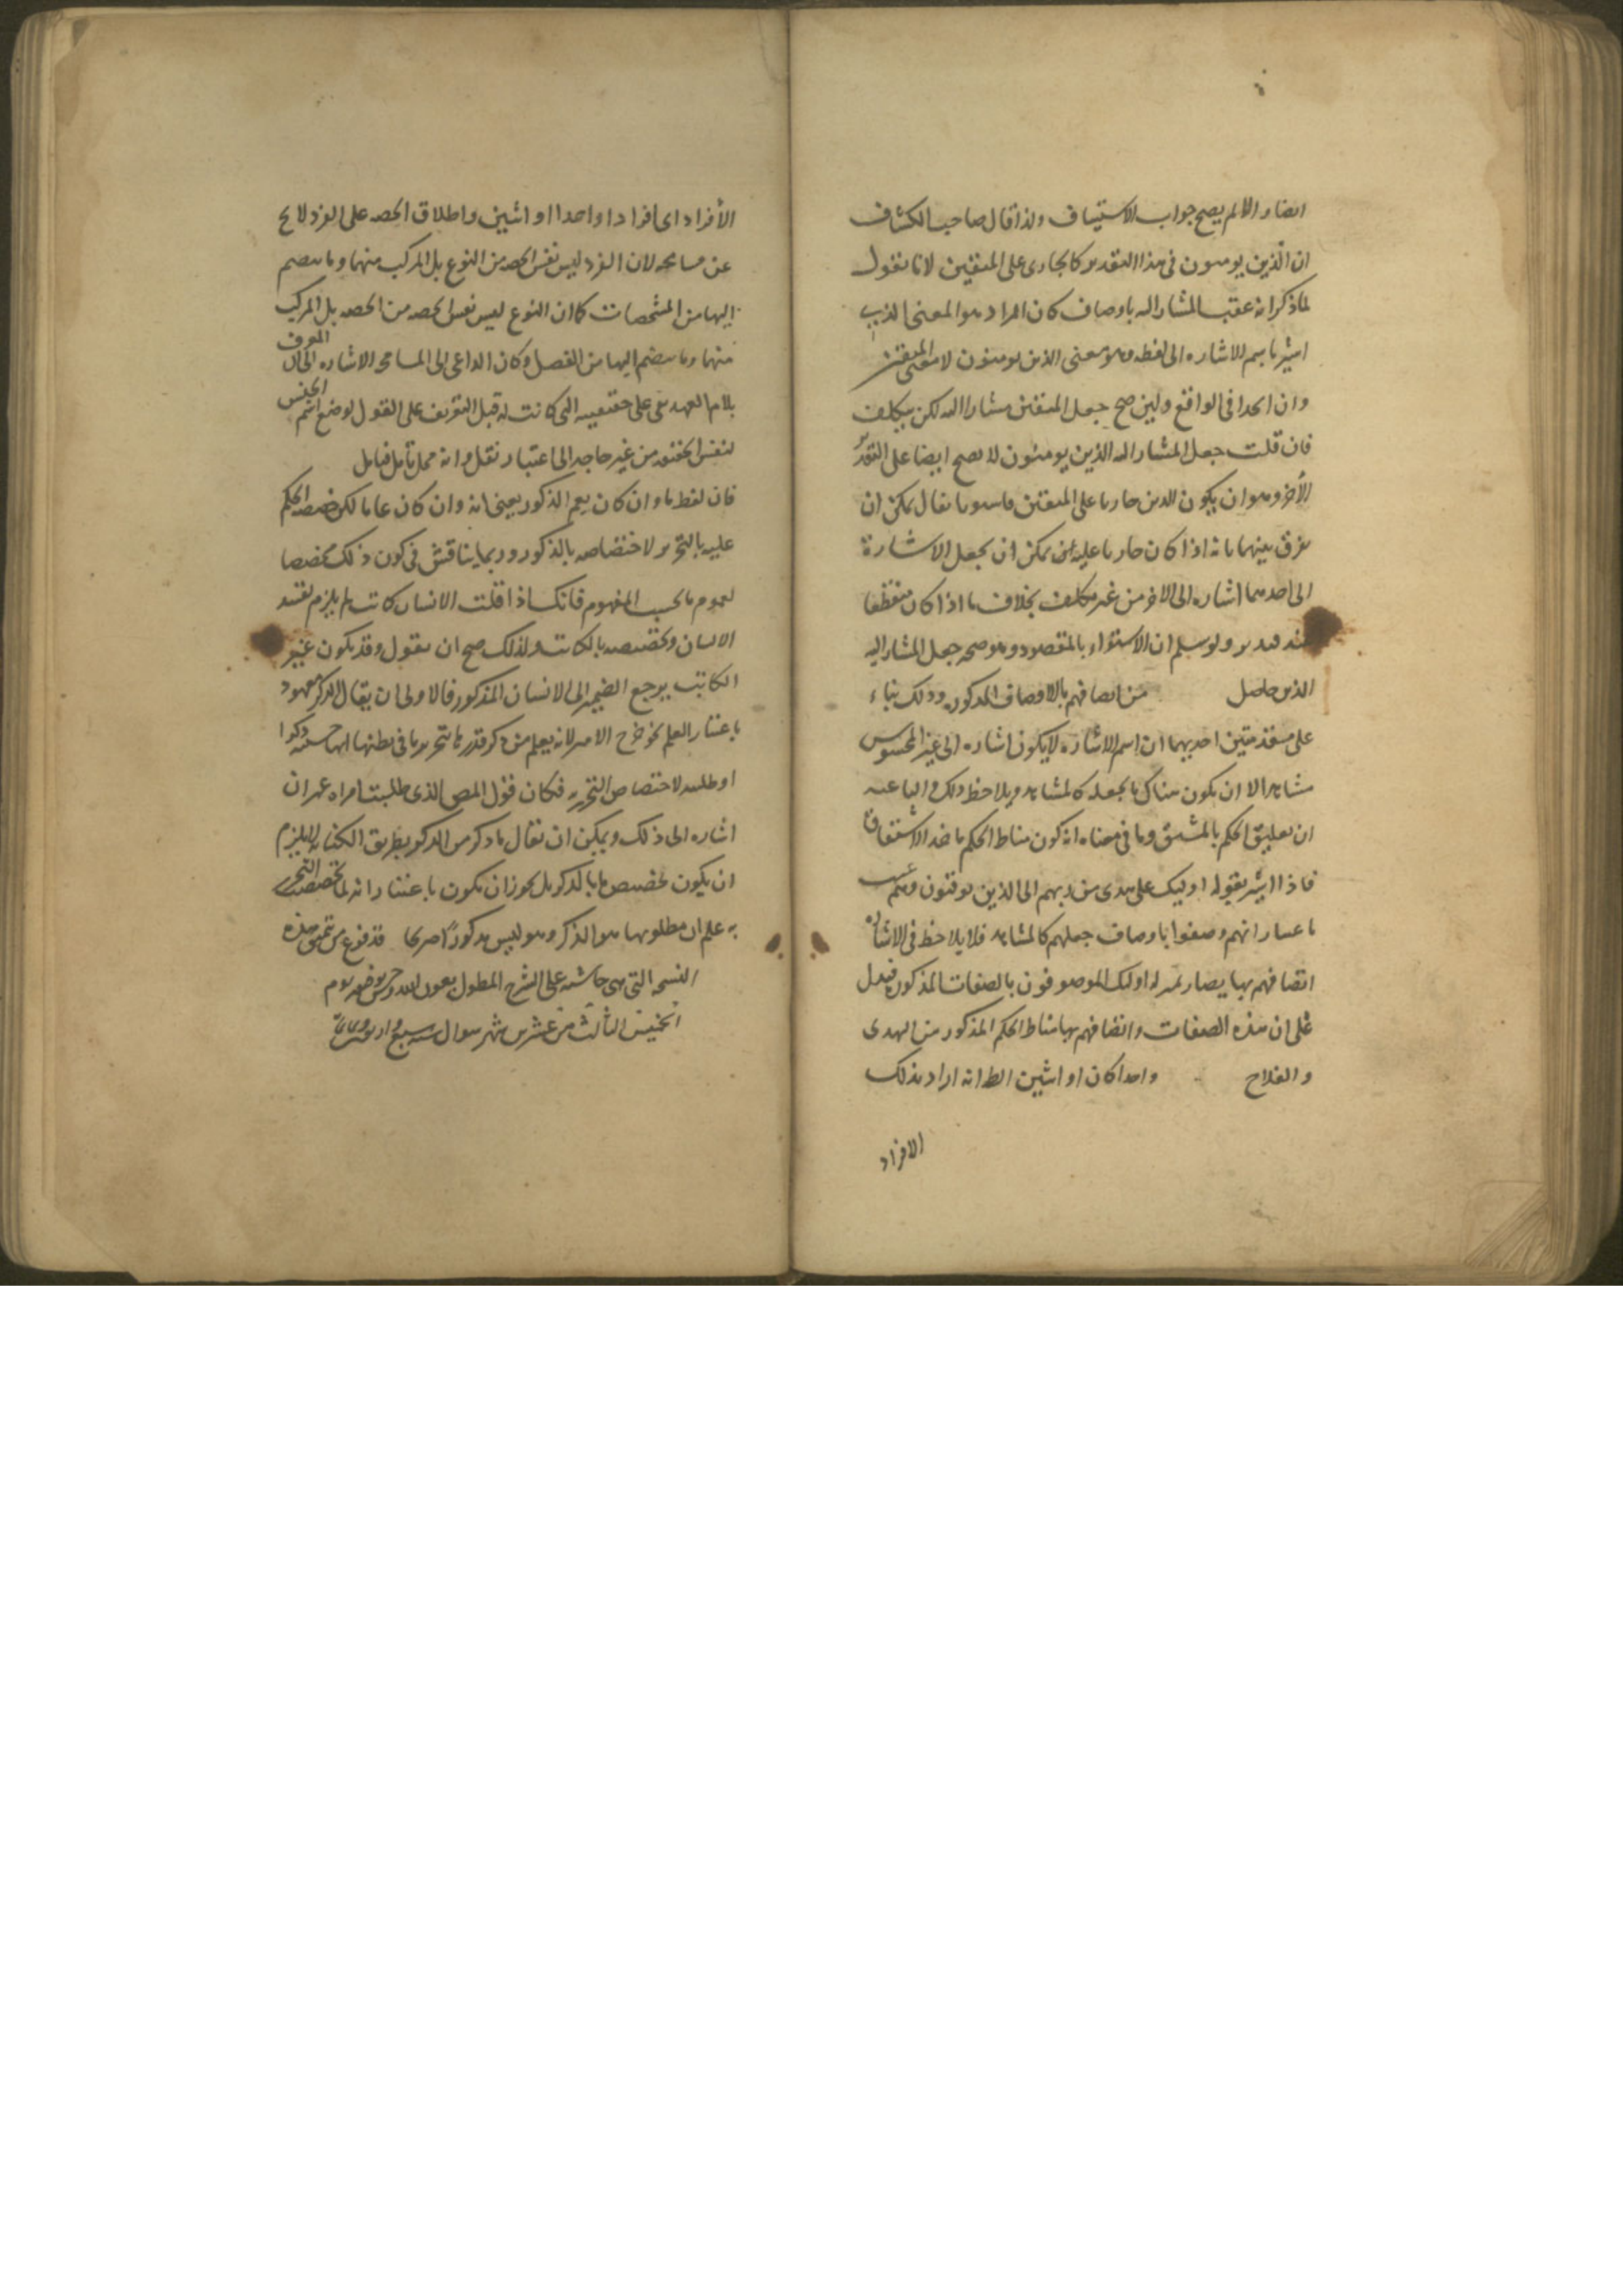 ايضا والا لم يصح جواب الاستيناف ولذا قال صاحب الكشاف
ان الذين يومنون في هذا التقدير كالجاري على المتقين لانا نقول
لما ذكر انه عقب المشار اليه باوصاف كان المراد هو المعنى الذي
اشير باسم الاشاره الى لفظه وهو معنى الذين يومنون لا معنى المتقين
وان اتحدا في الواقع ولين صح جعل المتقين مشارا اليه لكن بتكلف
فان قلت جعل المشار اليه الذين يومنون لا يصح ايضا على التقدير
الأخر وهو ان يكون الذين جاريا على المتقين فاسوما يقال يمكن ان
يفرق بينهما بانه اذا كان جاريا عليه يمكن ان يجعل الاشارة
الى احدهما اشاره الى الاخر من غير تكلف بخلاف ما اذا كان منقطعا
عنه فتدبر ولو سلم ان الاستواء بالمقصود وهو صحه جعل المشار اليه
الذين حاصل من اتصافهم بالاوصاف المذكوره وذلك بناء
على مقدمتين احديهما ان اسم الاشاره لا يكون اشاره الى غير المحسوس
مشاهد الا ان يكون هناك ما يجعله كالمشاهد ويلاحظ ذلك والباعث
ان تعليق الحكم بالمشتق وما في معناه انه كون مناط الحكم ماخذ الاشتقاق
فاذا اشير بقوله اوليك على هدى من ربهم الى الذين يوقنون
باعتبار انهم وصفوا باوصاف جعلهم كالمشاهد فلا يلاحظ في الاشاره
اتصافهم بها يصار بمنزله اوليك الموصوفون بالصفات المذكوره فيدل
على ان هذه الصفات واتصافهم بها مناط الحكم المذكور من الهدى
والفلاح واحدا كان او اثنين الظ انه اراد بذلك
الافراد
الأفراد اي افرادا واحدا او اثنين واطلاق الحصه على الفرد لا يخ
عن مسامحه لان الفرد ليس نفس الحصه من النوع بل المركب منهما وما ينضم
اليها من المشخصات كما ان النوع ليس نفس الحصه من الحصه بل المركب
منهما وما ينضم اليها من الفصل وكان الداعي الى المسامحه الاشاره الى ان المعرف
بلام العهد بقي على حقيقيته التي كانت له قبل التعريف على القول بوضع اسم الجنس
لنفس الحقيقه من غير حاجه الى اعتبار نقل وانه محل تامل فتامل
فان لفظ ما وان كان يعم الذكور يعني انه وان كان عاما لكن خصصه الحكم
عليه بالتحرير لاختصاصه بالذكور وربما يناقش في كون ذلك مخصصا
لعموم ما بحسب المفهوم فانك اذا قلت الانسان كاتب لم يلزم تقييد
الانسان وتخصيصه بالكاتب ولذلك صح ان نقول وقد يكون غير
الكاتب يرجع الضمير الى الانسان المذكور فالاولى ان يقال الذكر معهود
باعتبار العلم نحو خرج الامير لانه يعلم من ذكر نذرها تحرير ما في بطنها انها حسبته ذكرا
او طلبته لاختصاص التحرير فكان قول المص الذي طلبت امراه عمران
اشاره الى ذلك ويمكن ان يقال ما ذكر من الذكور بطريق الكنايه لا يلزم
ان يكون تخصيص ما بالذكور بل يجوز ان يكون باعتبار انه لما خصصت التحرير
به علم ان مطلوبها هو الذكر وهو ليس مذكورا صريحا قد فرغ من تنميق هذه
النسخه التي هي حاشيه على الشرح المطول بعون الله وحسن توفيقه يوم
الخميس الثالث من عشر من شهر شوال سنه سبع